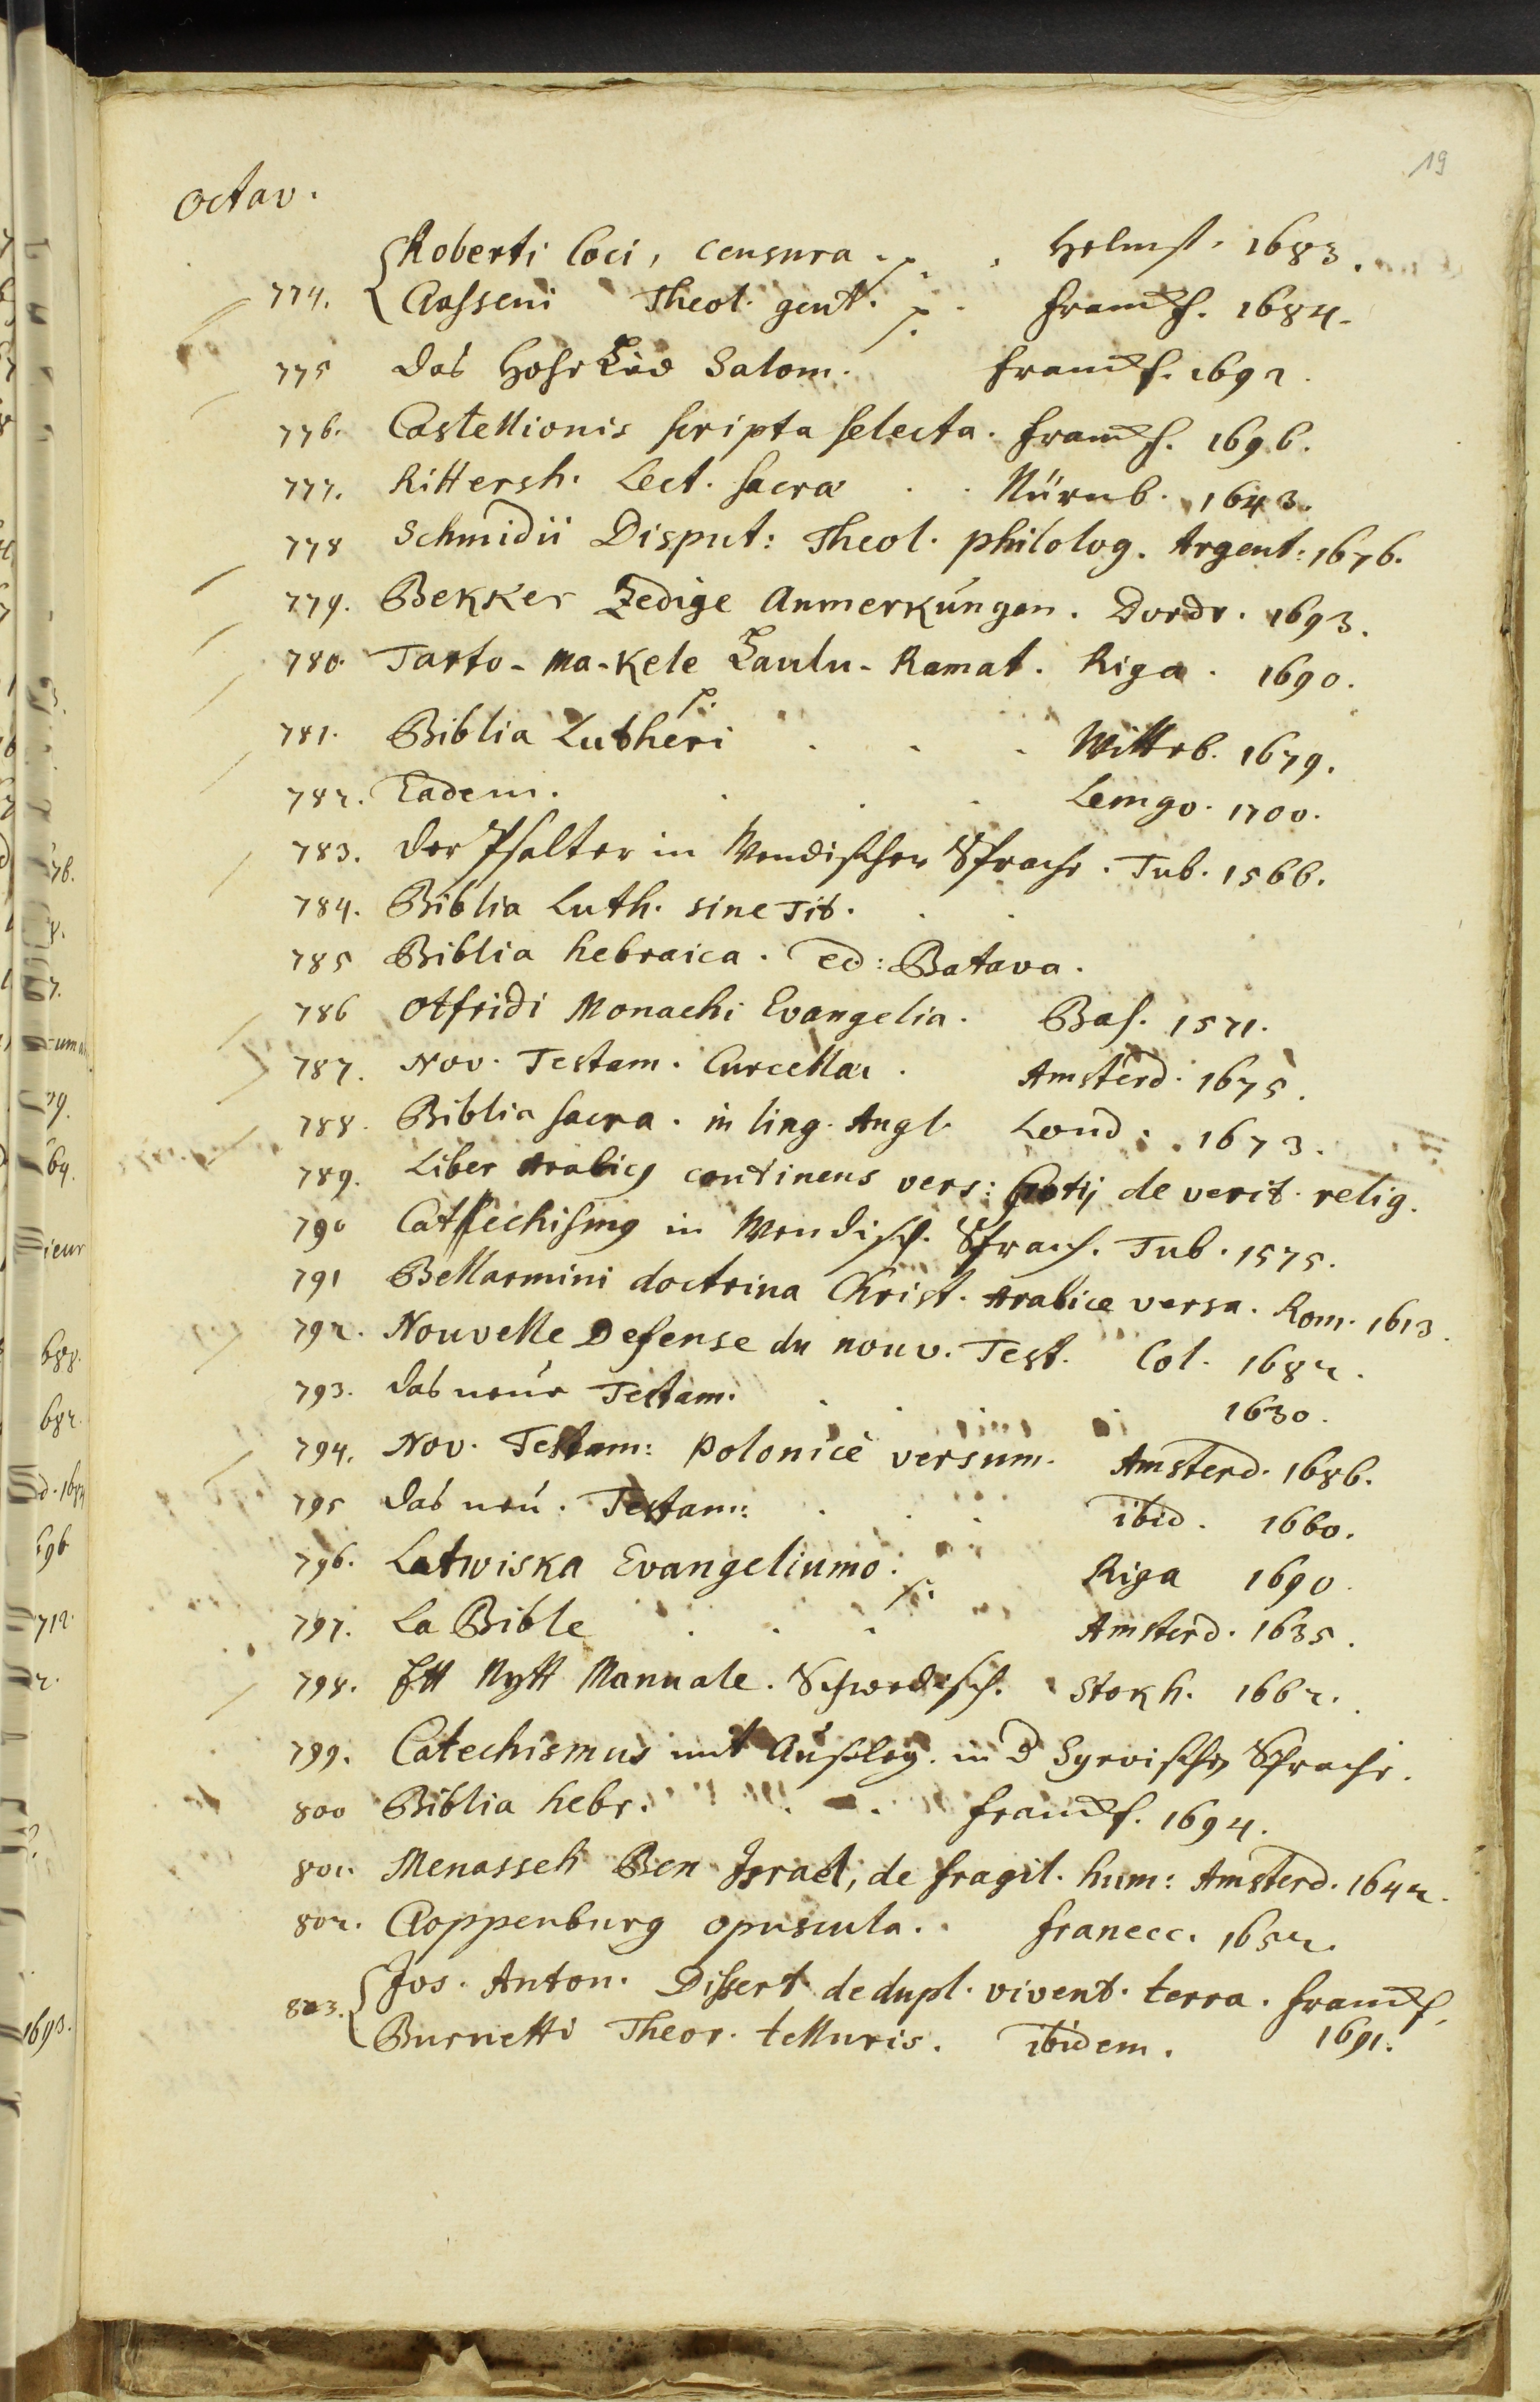 19
Octav.
Roberti Coci, censura . p. . Helmst. 1683.
774. Classeni Theol. gent. p. . Francf. 1684.
775 das Hohe Lied Salom. Francf. 1692.
776. Castellionis scripta selecta. Francf. 1696.
777. Rittersh. Lect. sacra . . Nürnb. 1643.
778 Schmidii Disput: Theol. philolog. Argent: 1676.
779. Bekker Zedige Anmerkungen. Dordr. 1693.
780. Tarto-Ma-Kele Laulu-Ramat. Riga. 1690.
781. Biblia Lutheri p. . . . Witteb. 1679.
782. Eadem. . . . Lemgo. 1700.
783. Der Psalter in Wendischer Sprache. Tub. 1566.
784. Biblia Luth. sine Tit. . .
785 Biblia hebraica. ed: Batava.
786 Otfridi Monachi Evangelia. Bas. 1571.
787. Nov. Testam. Curcellaei. Amsterd. 1675.
788. Biblia sacra. in ling. Angl. Lond. 1673.
789. Liber Arabicus continens vers: Grotij de verit. relig.
790 Catechismus in Wendisch. Sprach. Tub. 1575.
791 Bellarmini doctrina Christ. Arabice versa. Rom. 1613.
792. Nouvelle Defense du nouv. Test. Col. 1682.
793. das neue Testam. . . . 1630.
794. Nov. Testam: Polonicè versum. Amsterd. 1686.
795 das neu. Testam: . . . ibid. 1660.
796. Latwiska Evangeliumo. p. Riga 1690.
797. La Bible . . . Amsterd. 1635.
798. Ett Nytt Manuale. Schwedisch. Stokh. 1662.
799. Catechismus mit Außleg. in d Syrvischen Sprache.
800 Biblia hebr. . . Francf. 1694.
801. Menasseh Ben Israel, de fragil. hum: Amsterd. 1642.
802. Cloppenburg opuscula. . Franecc. 1652.
803. Jos. Anton. Dissert. de dupl. vivent. terra. Francf.
Burnetti Theor. telluris. ibidem. 1691.